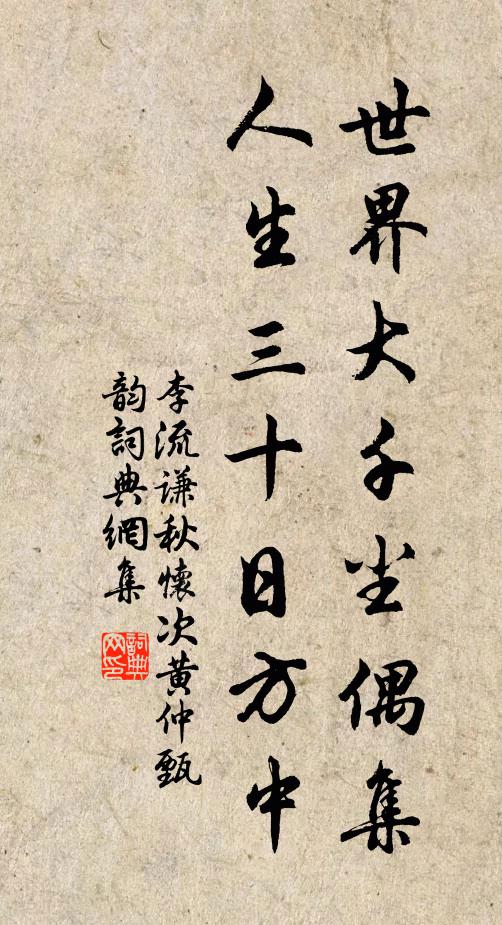 世界大千尘偶集
人生三十日方中
李流谦秋懷次黄仲甄
韵詞典網集
詞典
网印